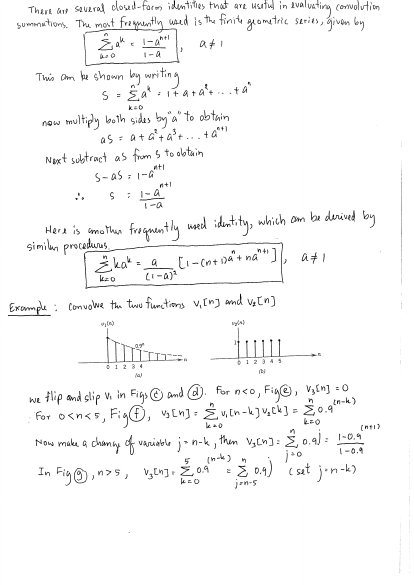 There are several closed-form identities that are useful in evaluating convolution
summations. The most frequently used is the finite geometric series, given by
n∑k=0 a^k = (1-a^(n+1))/(1-a), a≠1
This can be shown by writing
S = n∑k=0 a^k = 1+a+a²+...+a^n
now multiply both sides by "a" to obtain
aS = a+a²+a³+...+a^(n+1)
Next subtract aS from S to obtain
S-aS = 1-a^(n+1)
∴ S = (1-a^(n+1))/(1-a)
Here is another frequently used identity, which can be derived by
similar procedures
n∑k=0 ka^k = a/(1-a)² [1-(n+1)a^n+na^(n+1)], a≠1
Example: Convolve the two functions V₁[n] and V₂[n]
v₁(n) v₂(n)
0.9^n 1
0 1 2 3 4 n 0 1 2 3 4 5 n
(a) (b)
we flip and slip V₁ in Figs (c) and (d). For n<0, Fig (e), V₃[n]=0
For 0<n<5, Fig (f), V₃[n] = n∑k=0 V₁[n-k]V₂[k] = n∑k=0 0.9^(n-k)
Now make a change of variable j=n-k, then V₃[n] = n∑j=0 0.9^j = (1-0.9^(n+1))/(1-0.9)
In Fig (g), n>5, V₃[n] = 5∑k=0 0.9^(n-k) = n∑j=n-5 0.9^j (set j=n-k)